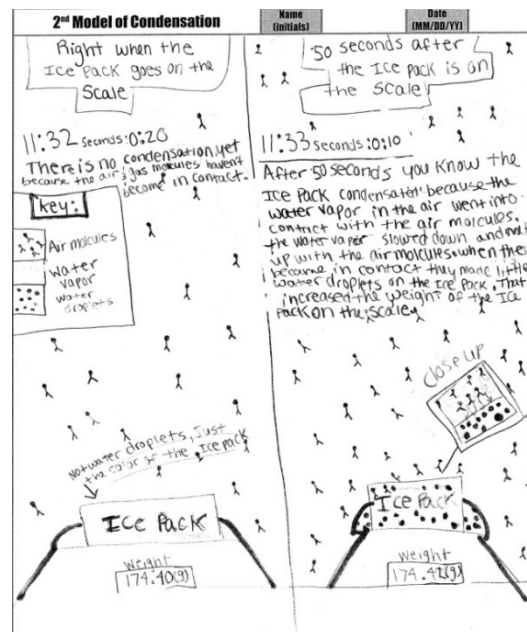 2nd Model of Condensation
Name
(initials)
Date
(MM/DD/YY)
Right when the
Ice Pack goes on the
Scale
11:32 seconds:0:20
There is no condensation yet
because the air & gas molcules haven't
become in contact.
key:
Air molcules
water
vapor
water
droplets
Not water droplets, Just
the color of the Icepack
Ice Pack
weight
174.40(g)
50 seconds after
the Ice pack is on
the Scale
11:33 seconds:0:10
After 50 seconds you know the
Ice Pack condensated because the
water vapor in the air went into
contact with the air molcules.
the water vapor slowed down and met
up with the air molcules. when they
became in contact they made little
water droplets on the Ice Pack. That
increased the weight of the Ice
Pack on the scale.
close up
Ice Pack
weight
174.42(g)